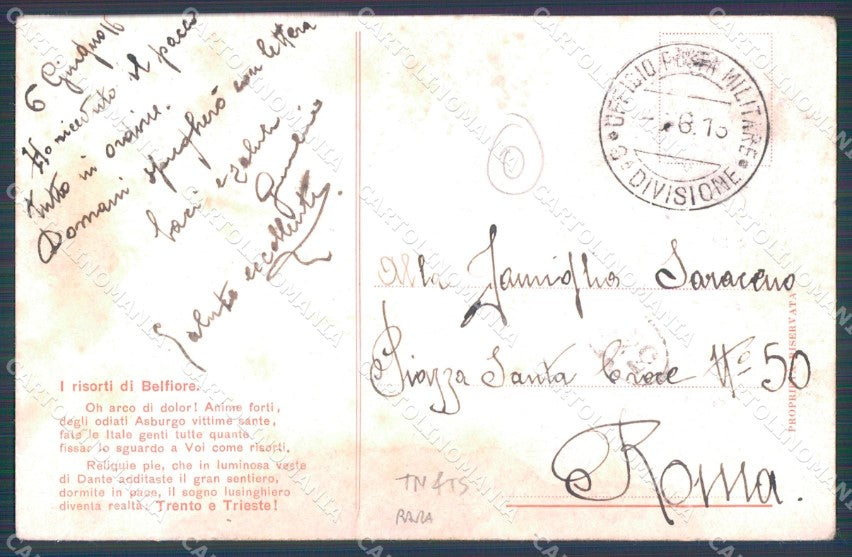 6 Giugno
Ho ricevuto il pacco
tutto in ordine.
Domani spegherò con lettera
baci e saluti
Giulio
Salute eccellente
I risorti di Belfiore.
Oh arco di dolor! Anime forti,
degli odiati Asburgo vittime sante,
fate le Itale genti tutte quante
fissar lo sguardo a Voi come risorti.
Reliquie pie, che in luminosa veste
di Dante additaste il gran sentiero,
dormite in pace, il sogno lusinghiero
diventa realtà. Trento e Trieste!
UFFICIO POSTA MILITARE
6.15
DIVISIONE
Alla Famiglia Saraceno
Piazza Santa Croce N.° 50
Roma.
PROPRIETÀ RISERVATA
TN 4T5
RARA
CARTOLINOMANIA